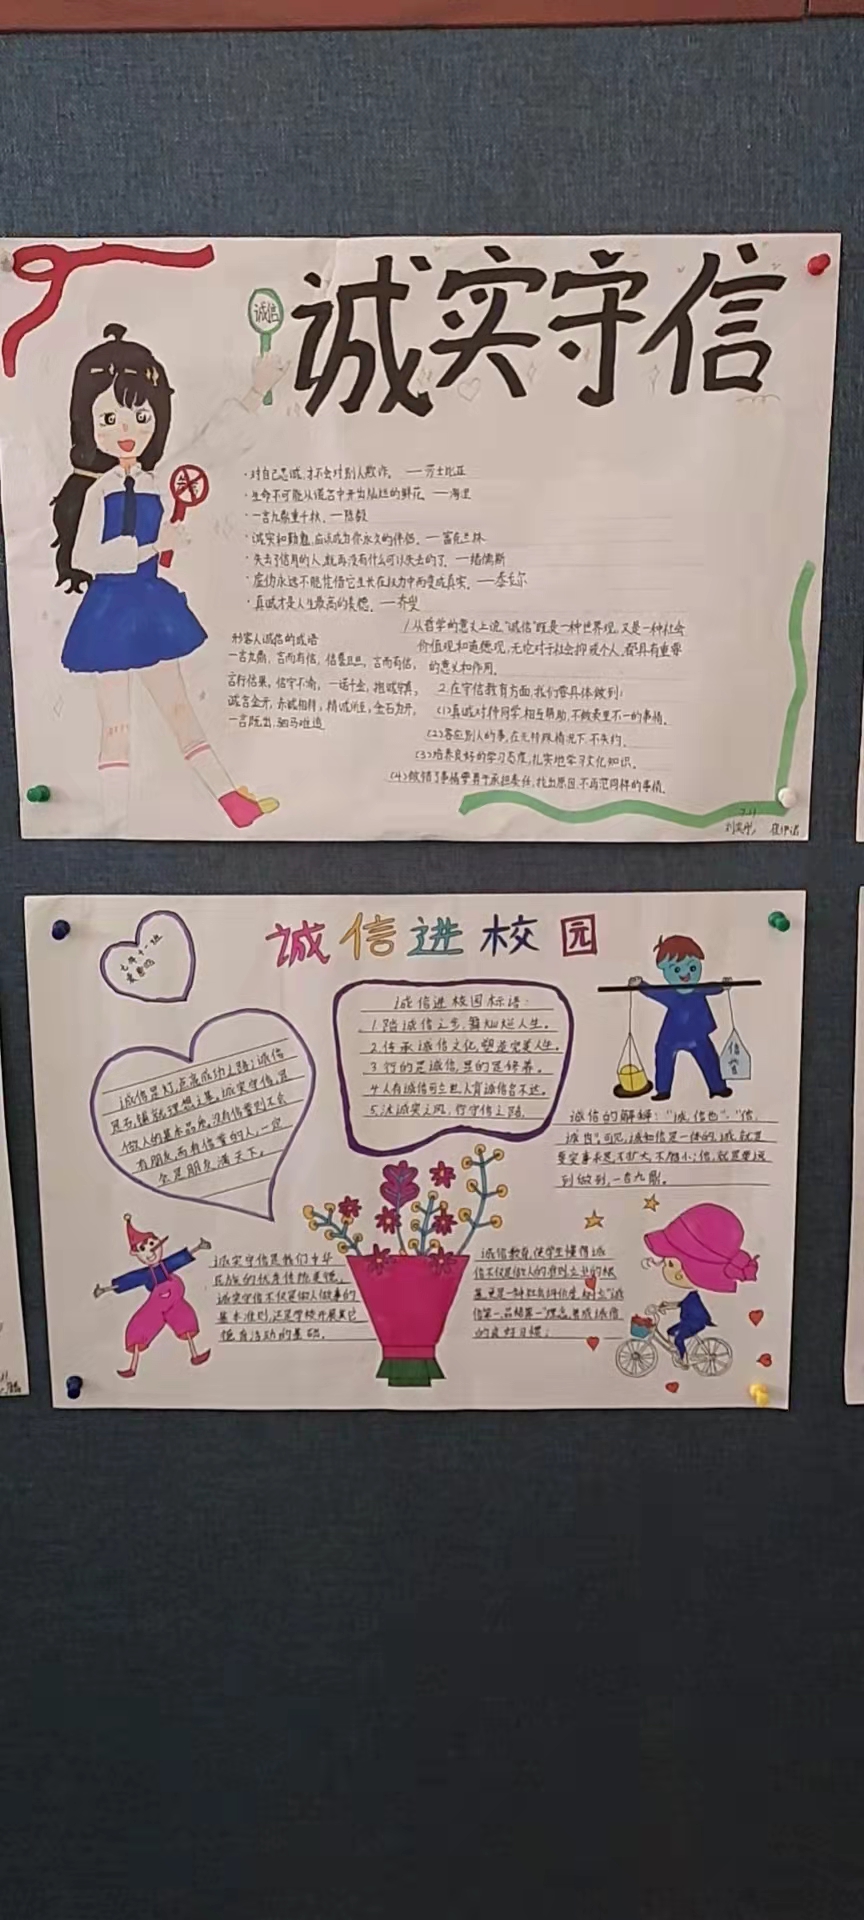 诚信
诚实守信
·对自己忠诚,才不会对别人欺诈。——莎士比亚
·生命不可能从谎言中开出灿烂的鲜花。——海涅
·一言九鼎重千秋。——陈毅
·诚实和勤勉,应该成为你永久的伴侣。——富兰克林
·失去了信用的人,就再没有什么可以失去的了。——绪儒斯
·虚伪永远不能凭借它生长在权力中而变成真实。——泰戈尔
·真诚才是人生最高的美德。——乔叟
形容人诚信的成语
一言九鼎,言而有信,信誓旦旦,言而有信,
言行信果,信守不渝,一诺千金,抱诚守真,
诚言金开,赤诚相待,精诚所至,金石为开,
一言既出,驷马难追
1.从哲学的意义上说,"诚信"既是一种世界观,又是一种社会
价值观和道德观,无论对于社会抑或个人,都具有重要
的意义和作用。
2.在守信教育方面,我们要具体做到:
(1)真诚对待同学,相互帮助,不做表里不一的事情。
(2)答应别人的事,在无特殊情况下,不失约。
(3)培养良好的学习态度,扎实地学习文化知识。
(4)做错了事情要勇于承担责任,找出原因,不再犯同样的事情。
7.11
诚信进校园
七年十一班
诚信是灯,点亮成功之路;诚信
是石,铺就理想之基。诚实守信,是
做人的基本品质,没有信誉则不会
有朋友,而有信誉的人,一定
会是朋友满天下。
诚信进校园标语:
1.踏诚信之步,舞灿烂人生。
2.传承诚信文化,塑造完美人生。
3.行的是诚信,显的是修养。
4.人有诚信可立世,人育诚信名不达。
5.沐诚实之风,行守信之路。
信誉
诚信的解释:"诚,信也","信,
诚也"。可见,诚和信是一体的。诚,就是
要实事求是,不扩大,不缩小;信,就是要说
到做到,一言九鼎。
诚实守信是我们中华
民族的优秀传统美德。
诚实守信不仅是做人做事的
基本准则,还是学校开展其它
德育活动的基础。
诚信教育,使学生懂得诚
信不仅是做人的准则,立业的根
基,更是一种社会评价度,树立"诚
信第一,品格第一"理念,养成诚信
的良好习惯;